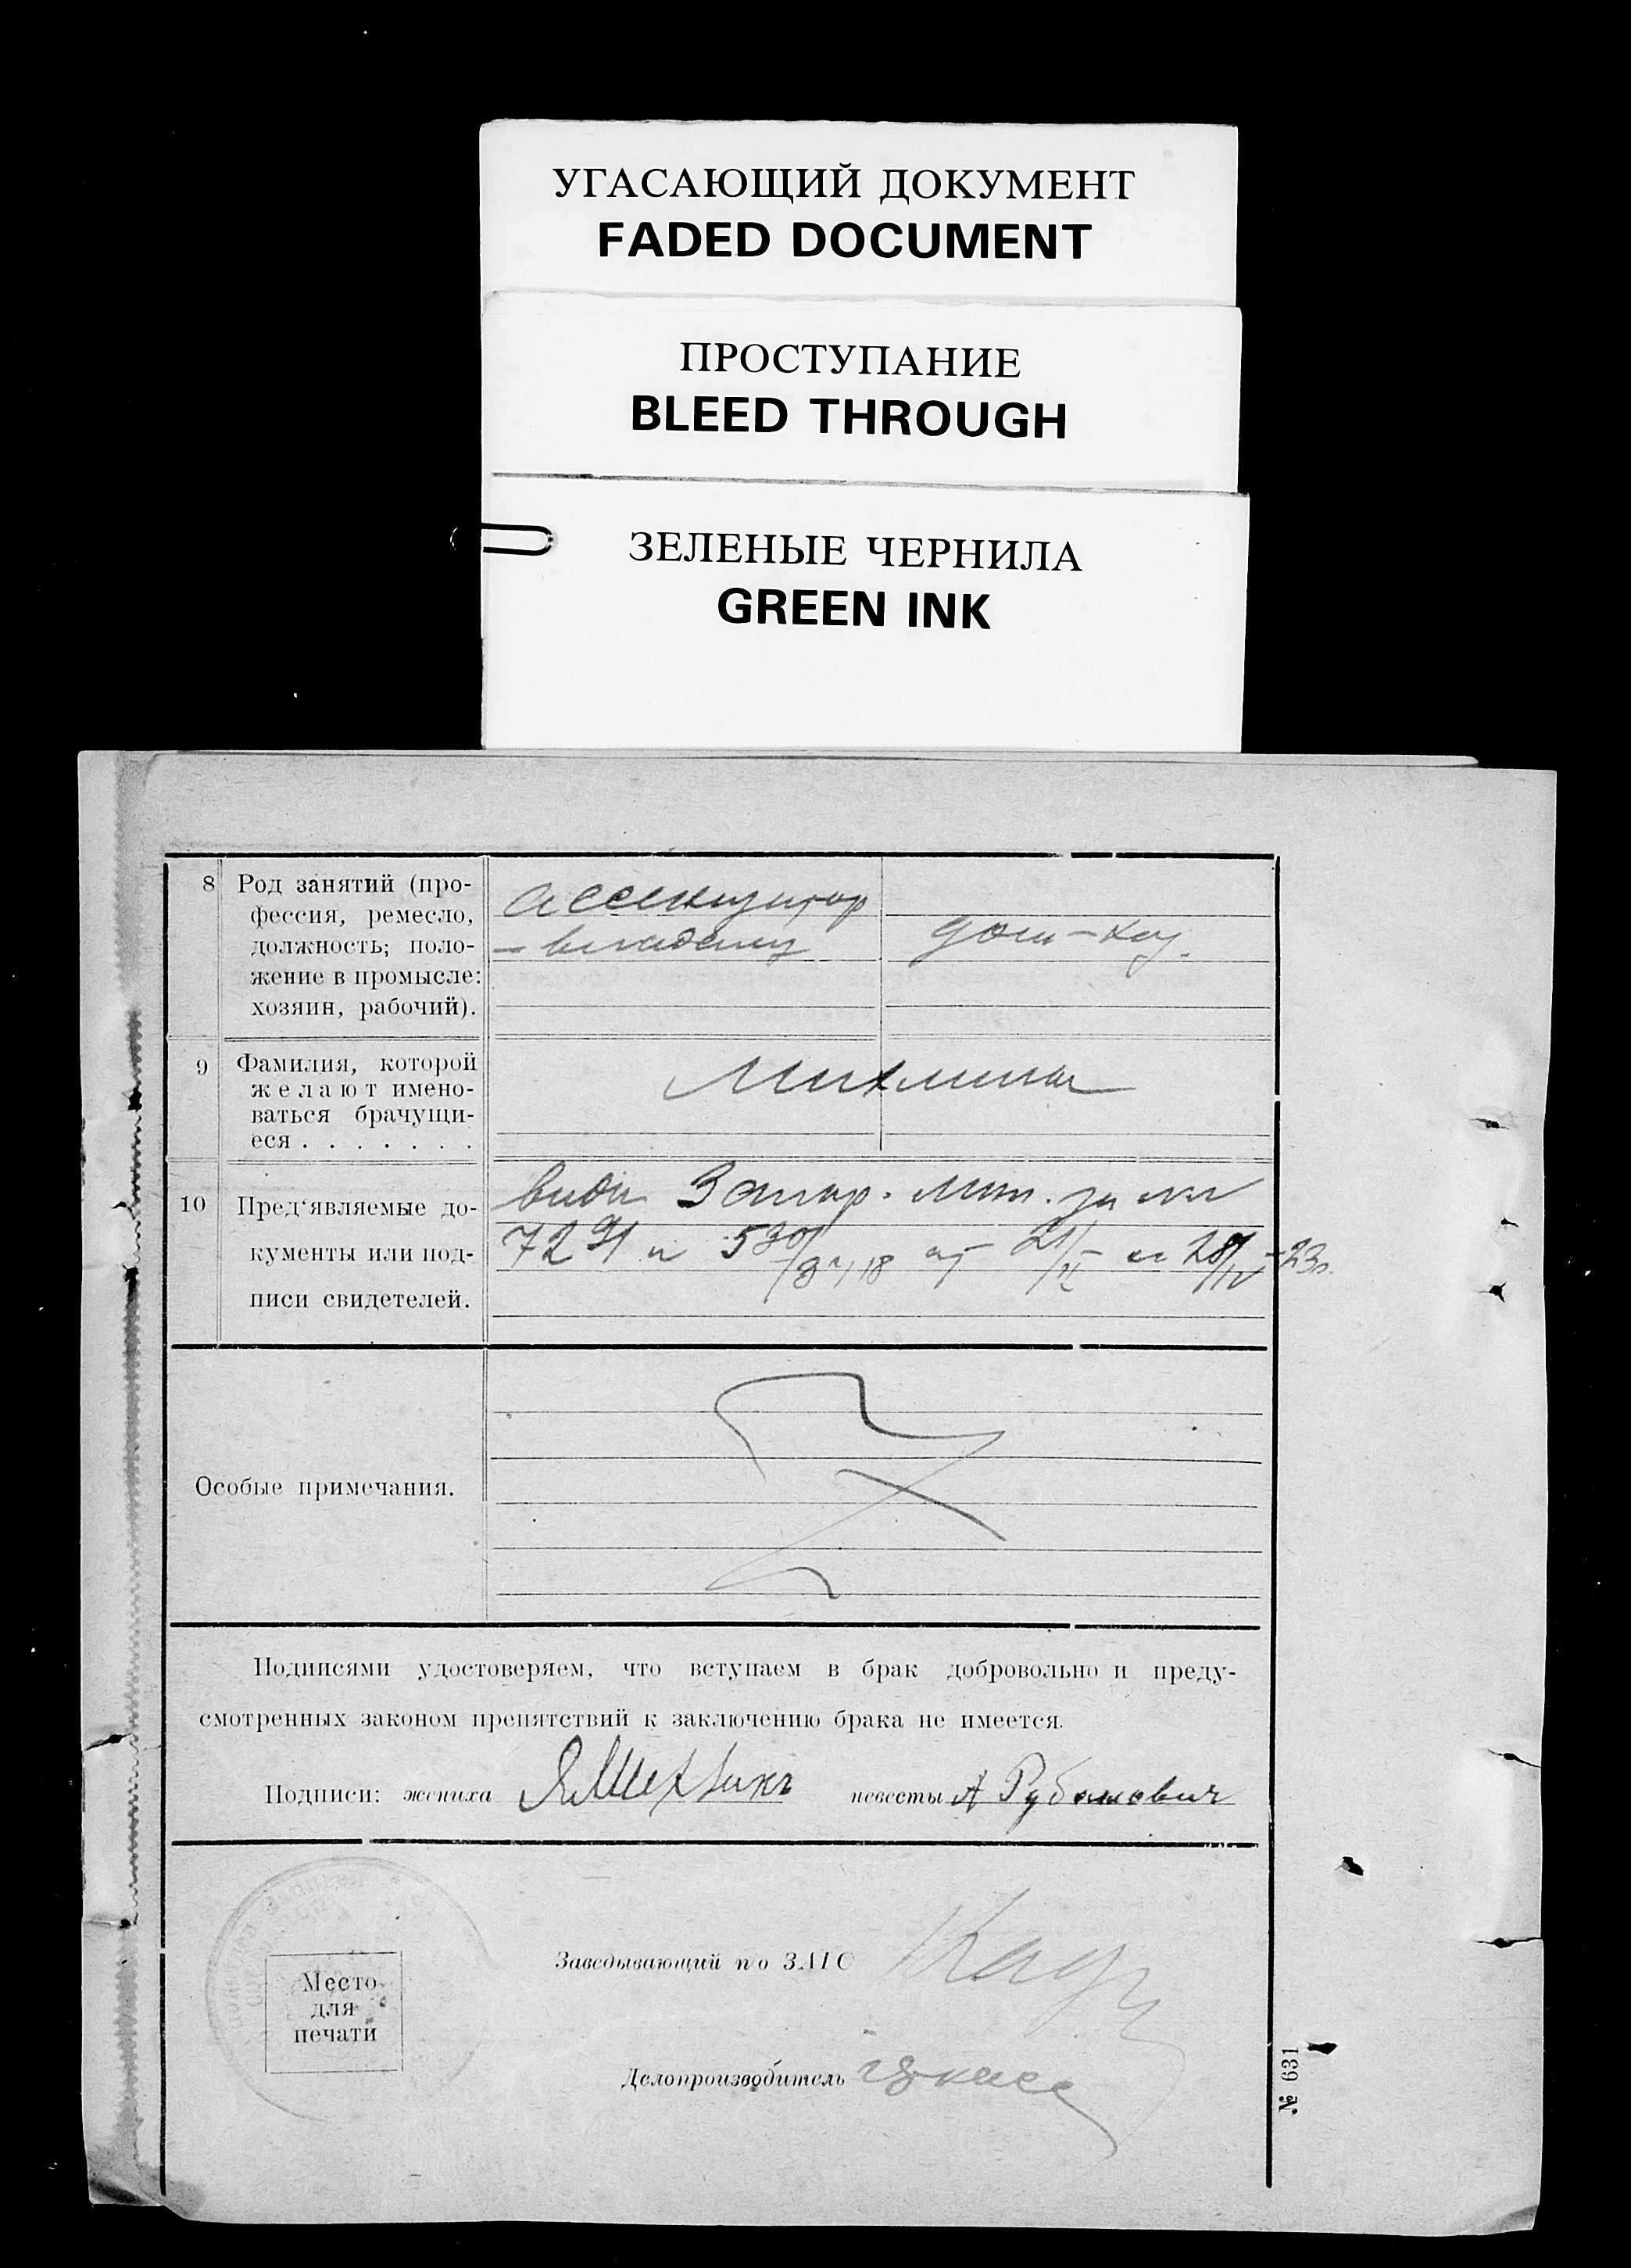 УГАСАЮЩИЙ ДОКУМЕНТ
FADED DOCUMENT
ПРОСТУПАНИЕ
BLEED THROUGH
ЗЕЛЕНЫЕ ЧЕРНИЛА
GREEN INK
8 Род занятий (про-
фессия, ремесло,
должность; поло-
жение в промысле:
хозяин, рабочий).
дом-хоз.
9 Фамилия, которой
желают имено-
ваться брачущи-
еся . . . . . . .
10 Пред'являемые до-
кументы или под-
писи свидетелей.
виды мил. за
Особые примечания.
Подписями удостоверяем, что вступаем в брак добровольно и преду-
смотренных законом препятствий к заключению брака не имеется.
Подписи: жениха невесты А Рубанович
Заведывающий п/о ЗАГС
Место
для
печати
Делопроизводитель
№ 631